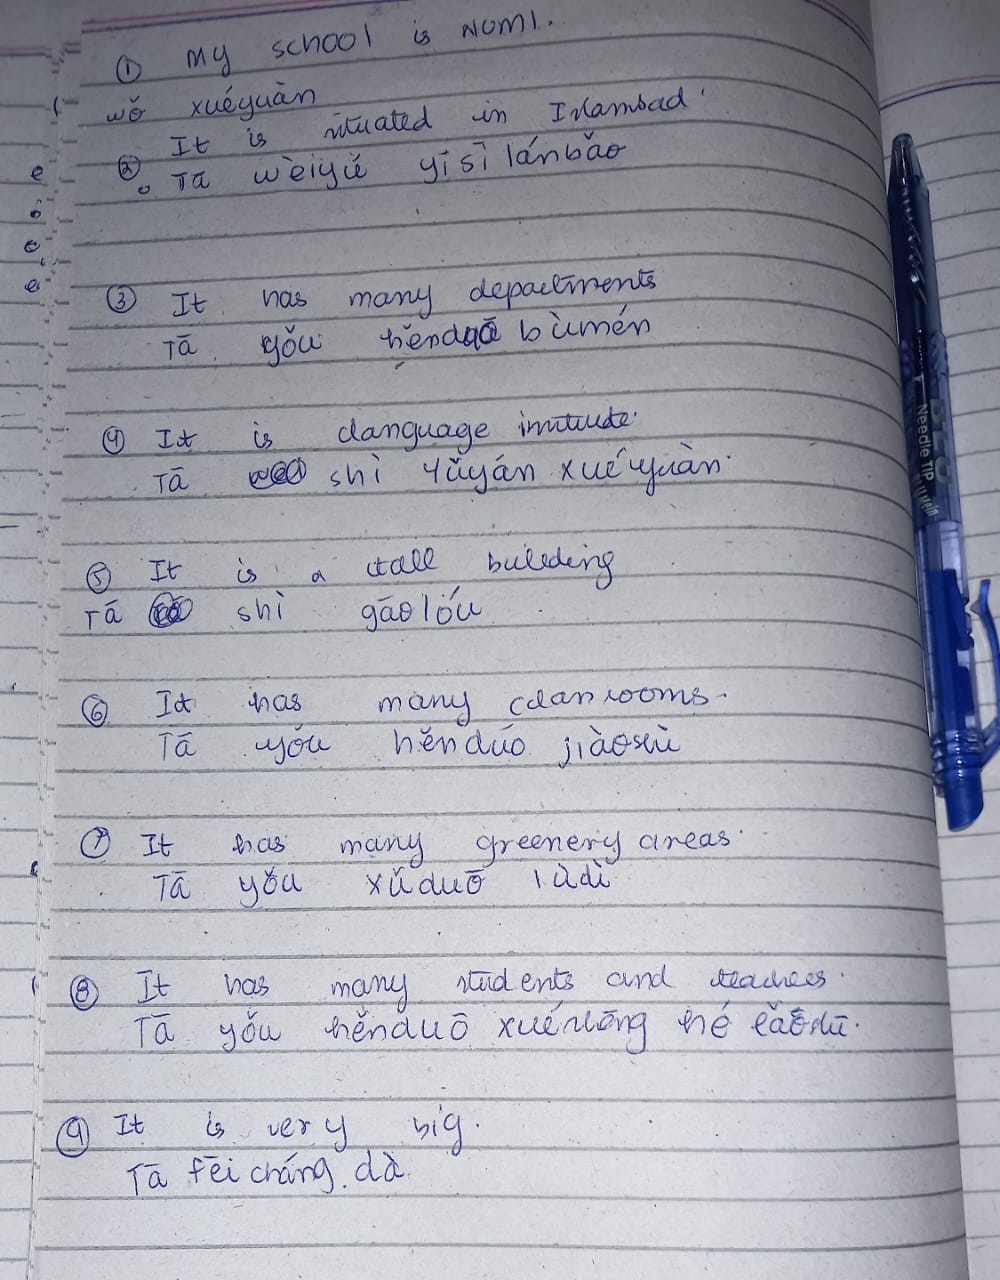 ① My school is NUML.
wǒ xuéyuàn
② It is situated in Islambad.
Tā wèiyú yīsī lánbǎo
③ It has many departments
Tā yǒu hěnduō bùmén
④ It is language institude.
Tā shì yǔyán xuéyuàn.
⑤ It is a tall building
Tā shì gāolóu
⑥ It has many classrooms.
Tā yǒu hěnduō jiàoshì
⑦ It has many greenery areas.
Tā yǒu xǔduō lùdì
⑧ It has many students and teachers.
Tā yǒu hěnduō xuéshēng hé lǎoshī.
⑨ It is very big.
Tā fēicháng dà.
Needle TIP